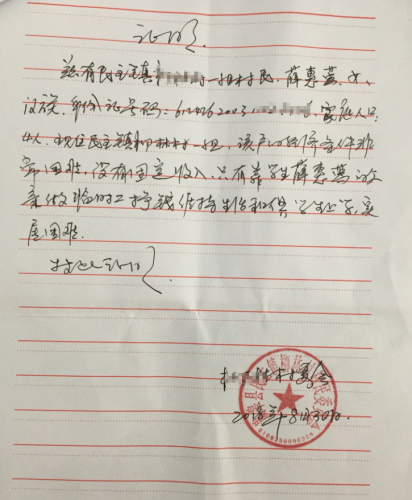 证明
兹有民主镇一组村民，薛惠莹，女，
汉族，身份证号码：6124262003，家庭人口
4人，现住民主镇柳林村一组，该户口经济条件非
常困难，没有固定收入，只有靠学生薛惠莹的父
亲做临时工挣钱维持生活和供学生上学，实
属困难。
特此证明
村委会
2018年8月30日.